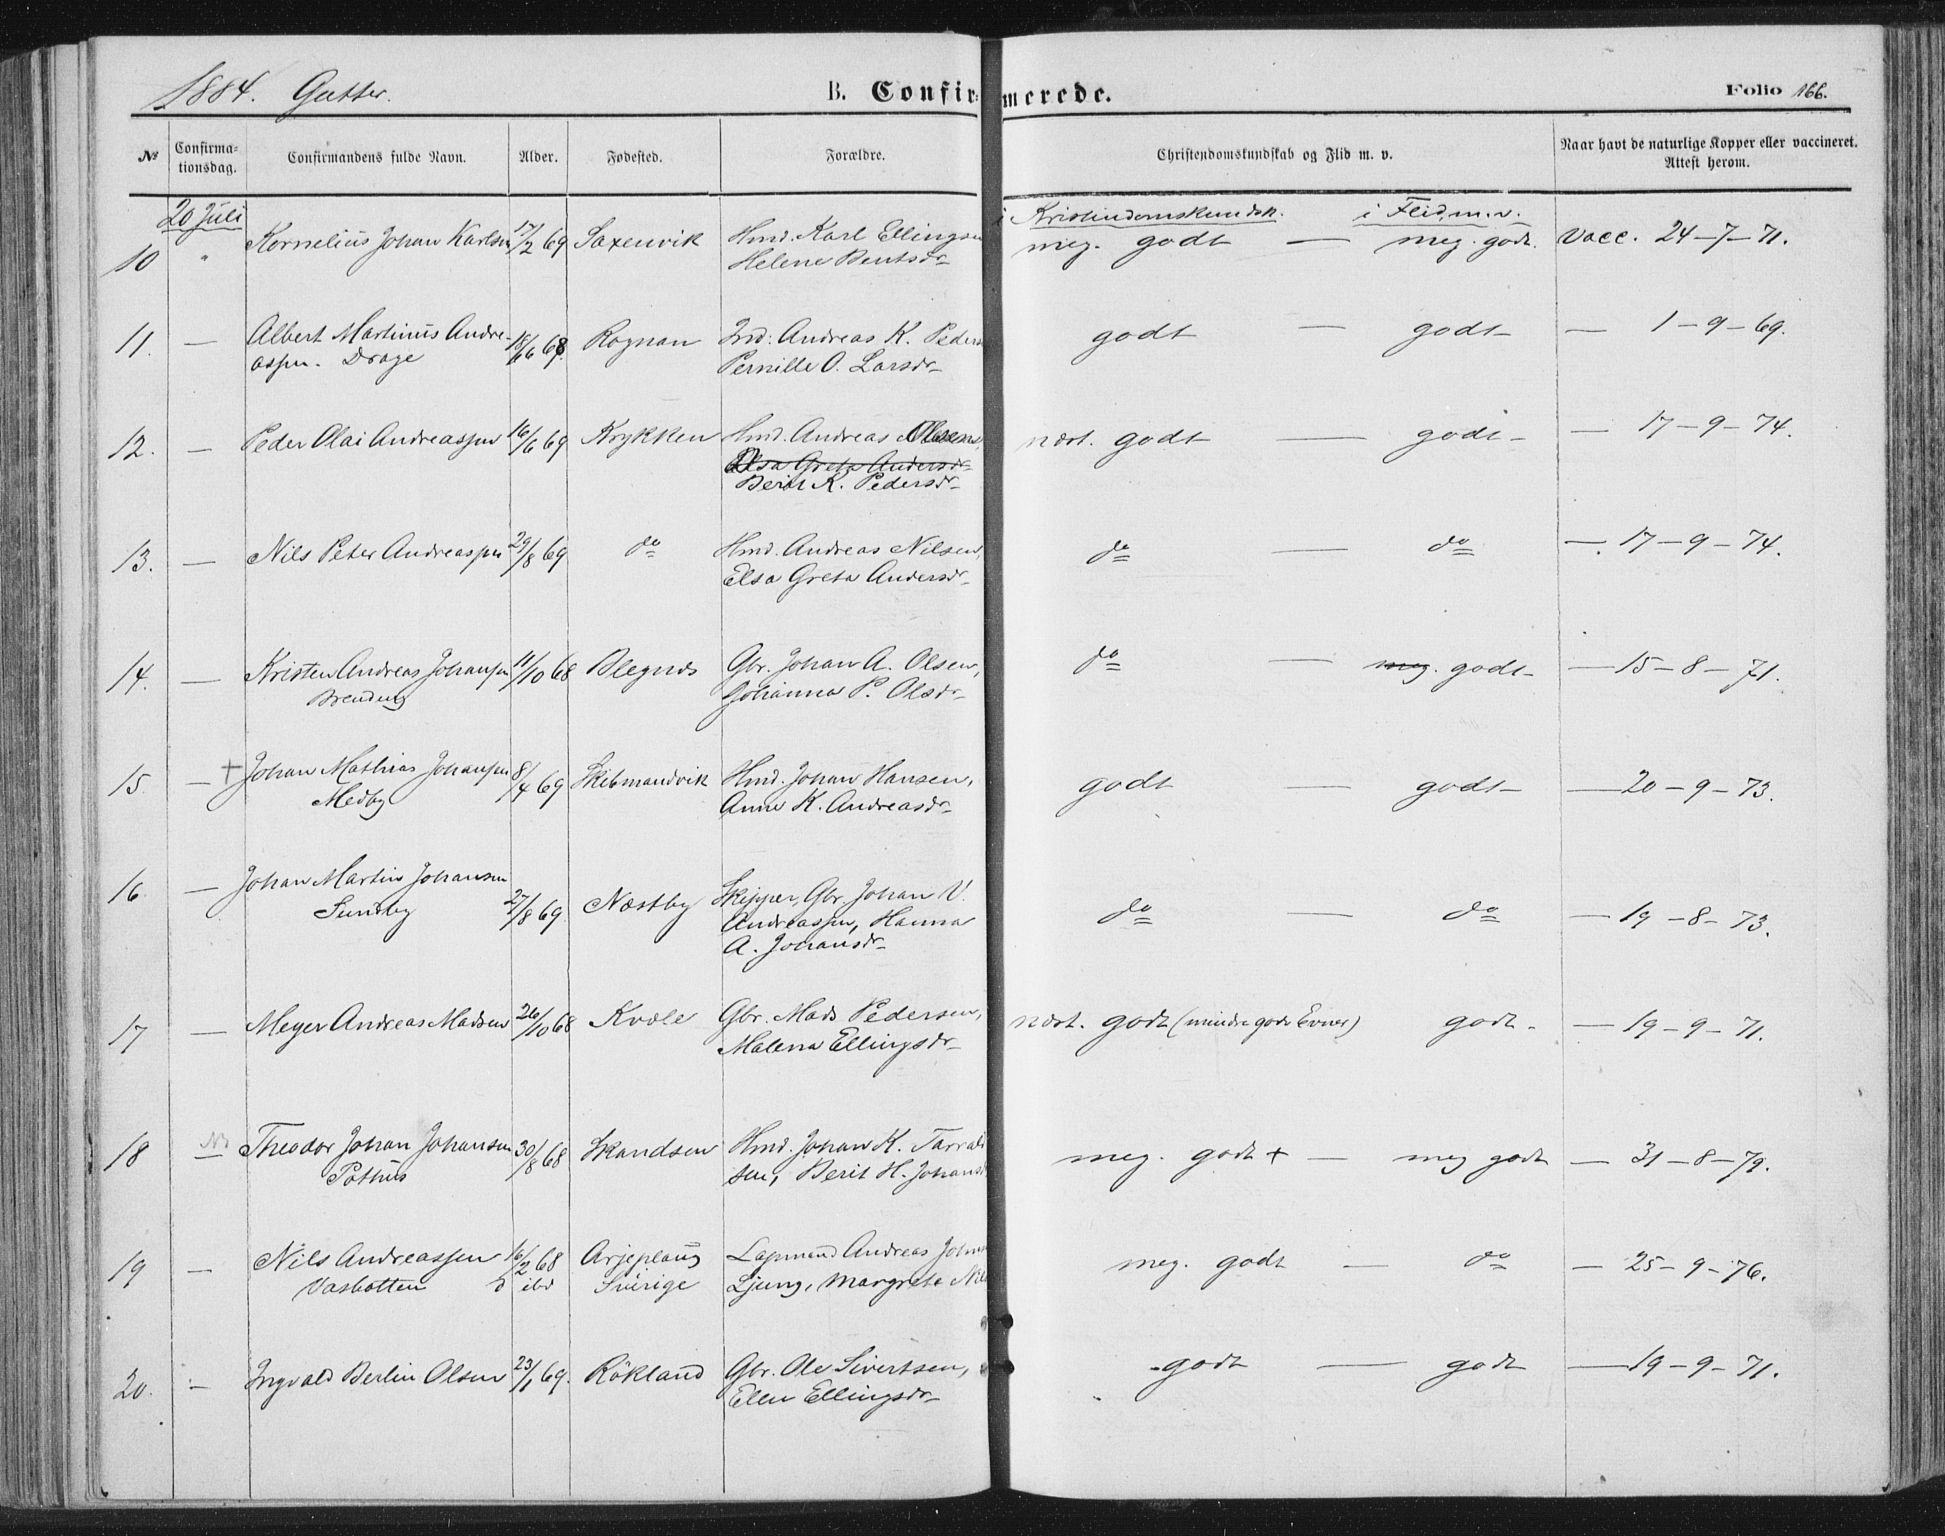 1884. Gutter. B. Confirmerede. Folio 166.
No Confirmationsdag. Confirmandens fulde Navn. Alder. Fødested. Forældre. Christendomskundskab og Flid m. v. Naar havt de naturlige Kopper eller vaccineret. Attest herom.
20 Juli i Kristindomskundsk. i Flid, m. v.
10 " Kornelius Johan Karlsen 17/2 69 Saxenvik Hmd. Karl Ellingsen meg. godt — meg. godt. Vacc. 24-7-71.
Helene Bentsdr
11. — Albert Martinus Andre- 18/6 68. Rognan Ind. Andreas K. Peders godt — godt — 1-9-69.
assen. Drage Pernille O. Larsdr
12. — Peder Olai Andreassen 16/6 69 Krykken Hmd. Andreas Olsen, næst. godt — godt — 17-9-74.
Elsa Greta Andersdr
Berit K. Pedersdr
13. — Nils Peter Andreassen 29/8 69 do Hmd. Andreas Nilsen, do — do —. 17-9-74.
Elsa Greta Andersdr
14. — Kristen Andreas Johansen 11/10 68 Blegnes Gbr. Johan A. Olsen, do — meg. godt — 15-8-71.
Brendeng Johanna P. Olsdr
15. — + Johan Mathias Johansen 8/4 69 Skibmandvik Hmd. Johan Hansen, godt — godt — 20-9-73.
Medby Anne K. Andreasdr
16. — Johan Martin Johansen
Sundby 27/8 69 Næstby Skipper, Gbr. Johan V. do — do — 19-8-73.
Andreassen, Hanna
A. Johansdr
17 — Meyer Andreas Madsen 26/10 68 Kvæle Gbr. Mads Pedersen, næst. godt (mindre gode Evner) godt. — 19-9-71.
Malena Ellingsdr
18 — Theodor Johan Johansen 30/8 68 Skandsen Hmd. Johan K. Tarrald meg. godt + — meg godt — 31-8-79.
Pothus sen, Berit H. Johansd
19 — Nils Andreassen 16/2 68 Arjeplaug Lapmand Andreas Johns meg. godt — do — 25-9-76.
Vasbotten D ibd Sverige Ljung, Margrete Nils
20. — Ingvald Berlin Olsen 23/1 69. Rökland Gbr. Ole Sivertsen, godt — godt — 19-9-71.
Ellen Ellingsdr